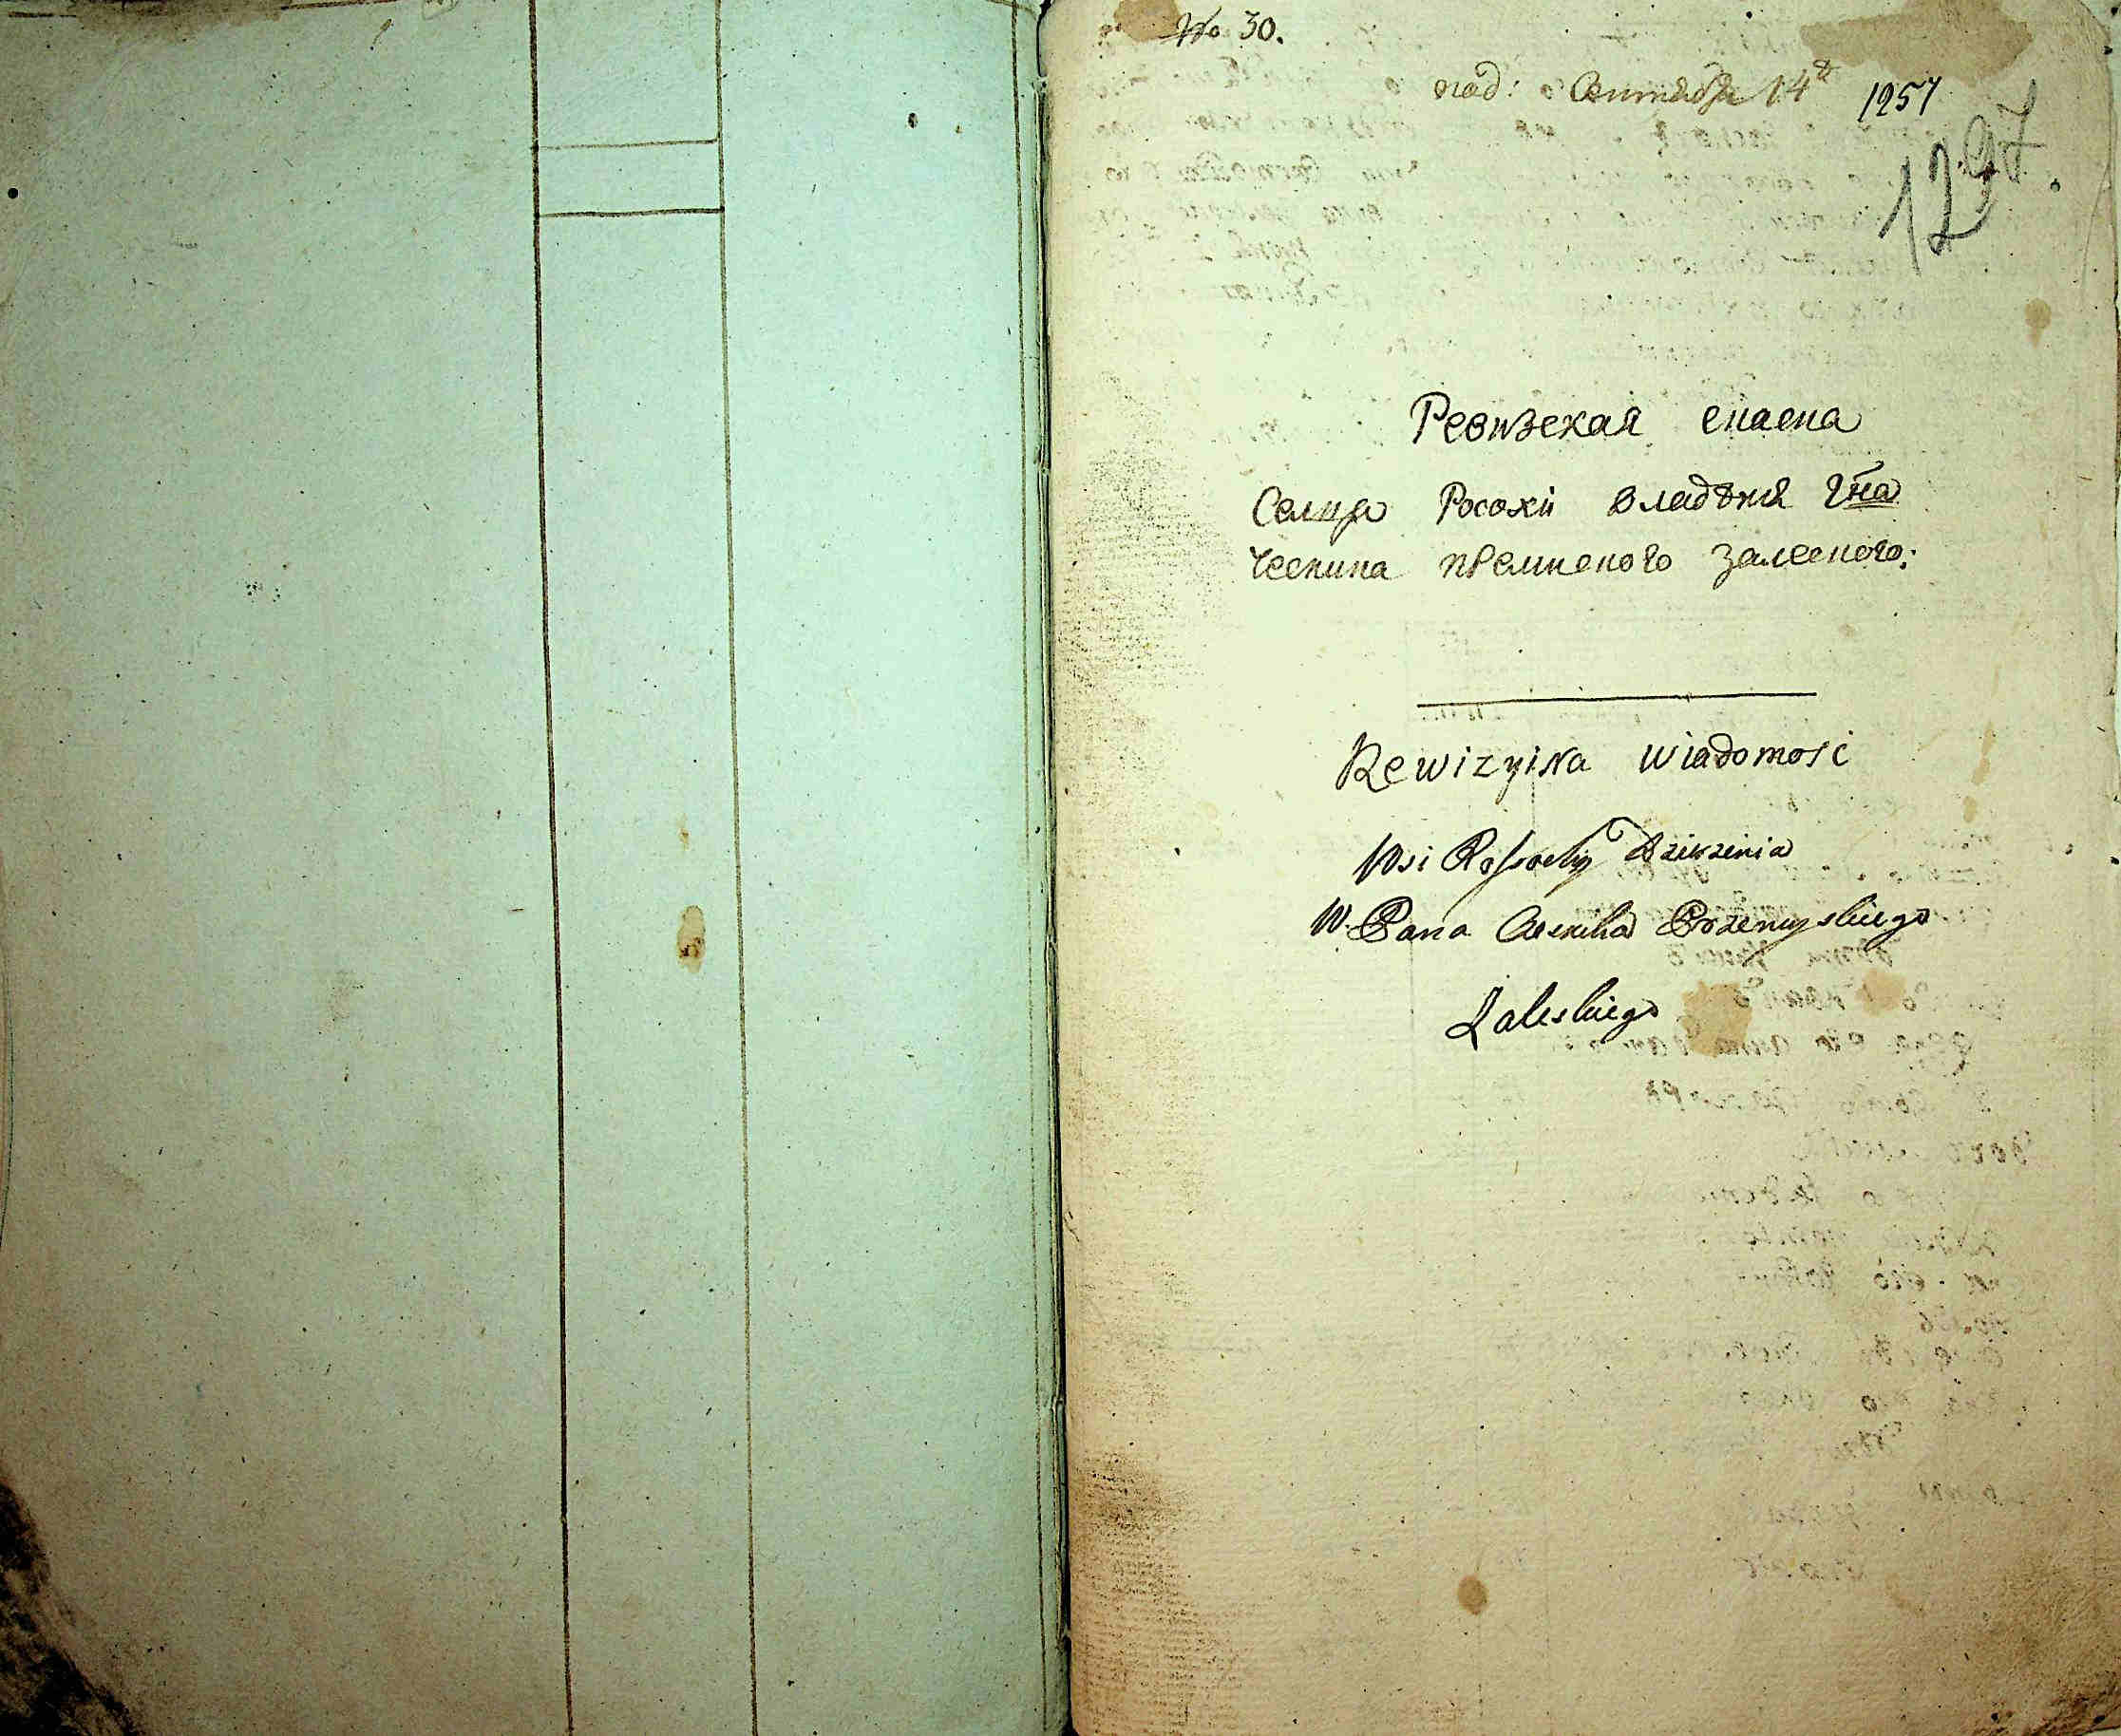 No 30.
под: Сентября 14го 1257
1297.
Ревизская скаска
Селца Росохи владѣня Гна
Чесника премиского Залеского:
Rewizyina wiadomosć
Wsi Rossochy Dzierżenia
W. Pana Cześnika Przemyskiego
Zaleskiego